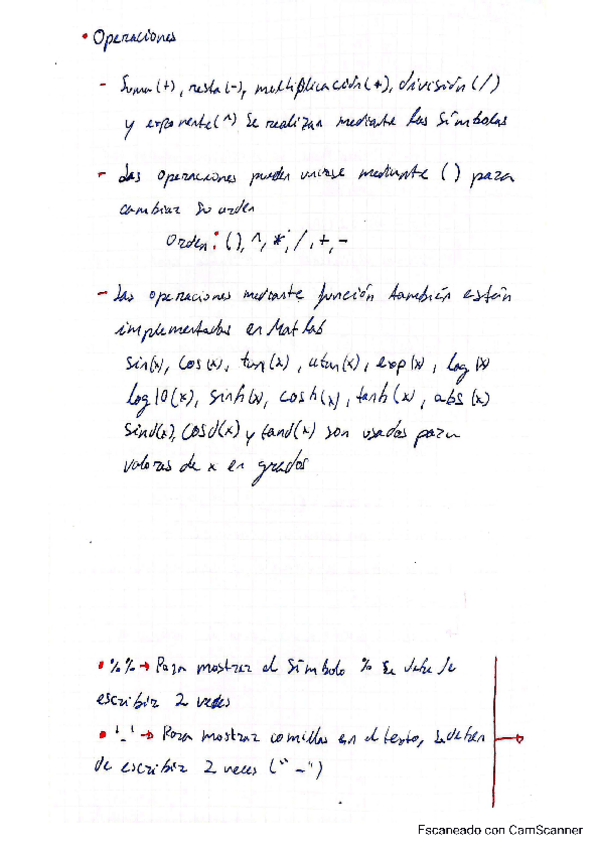 • Operaciones
- Suma(+), resta(-), multiplicación(*), división(/)
y exponente(^) se realizan mediante los símbolos
- Las operaciones pueden unirse mediante () para
cambiar su orden
Orden: (), ^, *, /, +, -
- Las operaciones mediante función también están
implementadas en Matlab
sin(x), cos(x), tan(x), atan(x), exp(x), log(x)
log10(x), sinh(x), cosh(x), tanh(x), abs(x)
sind(x), cosd(x) y tand(x) son usados para
valores de x en grados
• %% → Para mostrar el símbolo % se debe de
escribir 2 veces
• '_' → Para mostrar comillas en el texto, se deben
de escribir 2 veces ('' _ '')
Escaneado con CamScanner